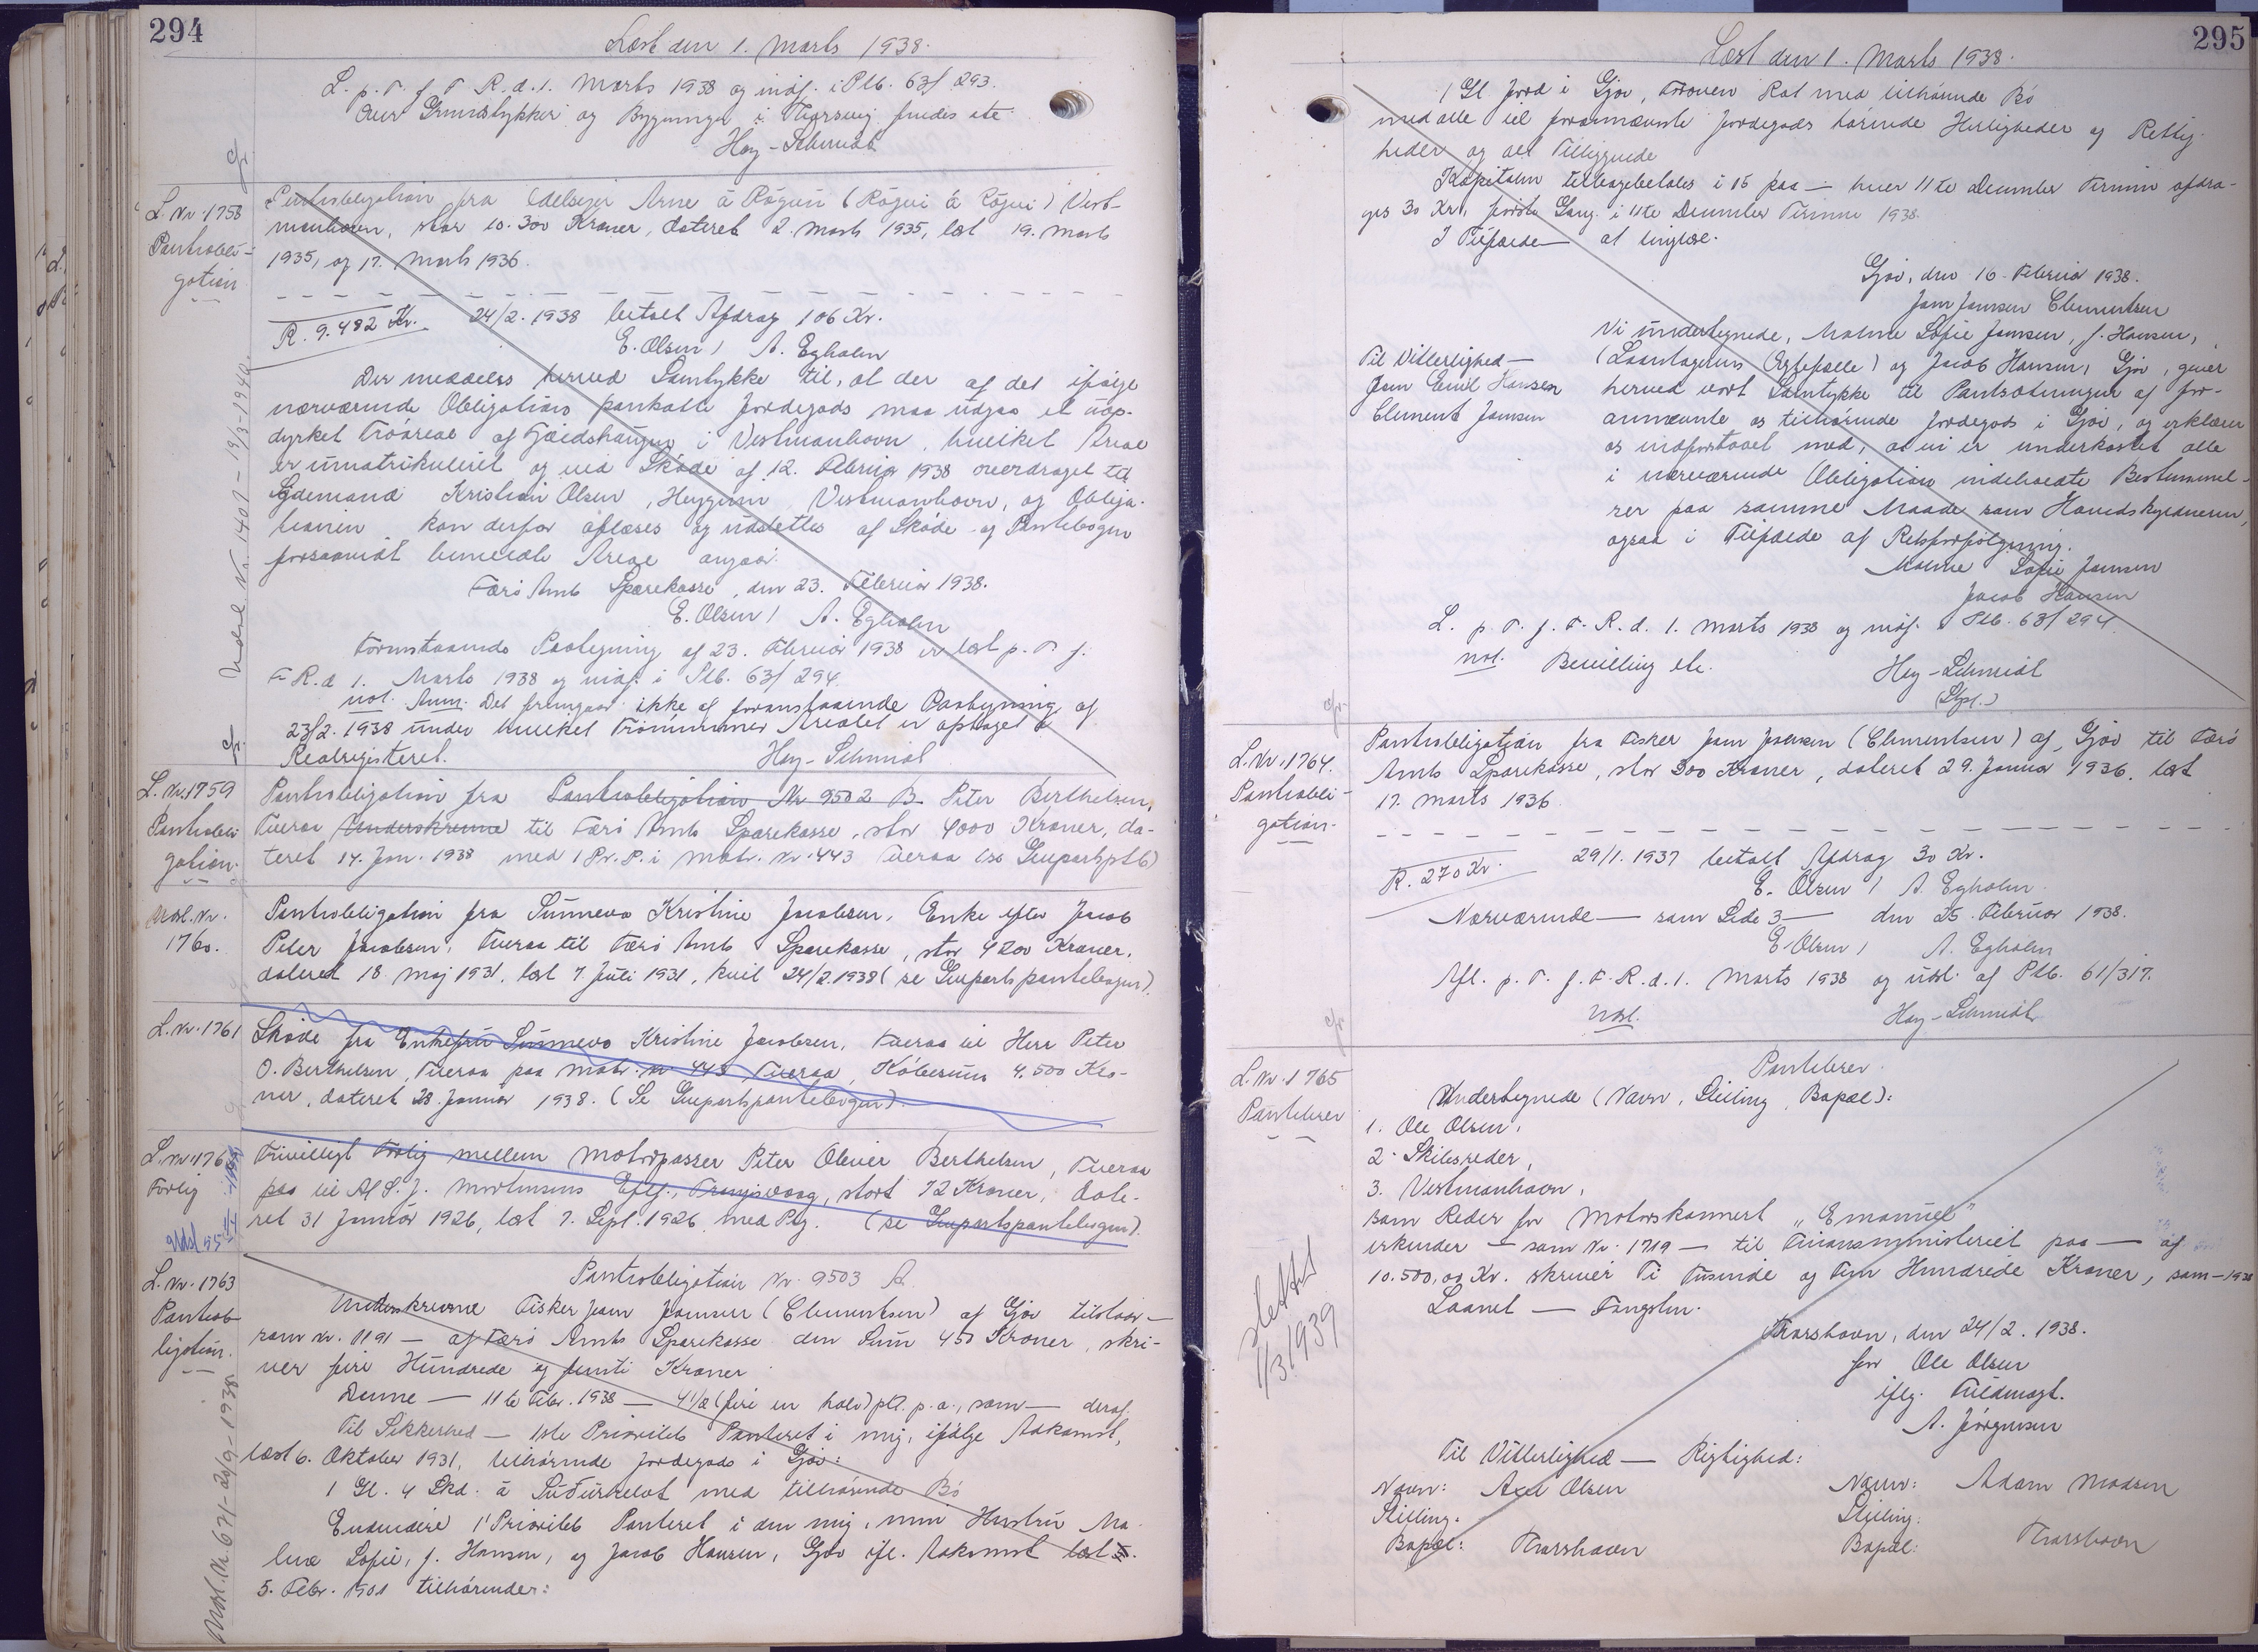 294
Læst den 1. Marts 1938.
L. p. T. f. F. R. d. 1. Marts 1938 og indf. i Ptb. 63/293.
over Grundstykker og Bygninger i Thorsvig findes etc.
Hey-Schmidt
L. Nr. 1758
Pantobli-
gation
Udsl. Nr. 1401 - 19/3-1940.
Pantobligation fra Edelsejer Arne á Rógvu (Rógvi á Rógvi) Vest-
manhavn, stor 10.300 Kroner, dateret 2. Marts 1935, læst 19. Marts
1935, og 17. Marts 1936.
R. 9.482 Kr. 24/2. 1938 betalt Afdrag 106 Kr.
E. Olsen / A. Egholm
Der meddeles herved Samtykke til, at der af det ifølge
nærværende Obligation pantsatte Jordegods maa udgaa et uop-
dyrket Tróareal af Fjeldshaugen i Vestmanhavn, hvilket Areal
er umatrikuleret og ved Skøde af 12. Februar 1938 overdraget til
Kristian Olsen, Heygum, Vestmanhavn, og Obliga-
tionen kan derfor aflæses og udslettes af Skøde- og Pantebogen
forsaavidt bemeldte Areal angaar.
Færø Amts Sparekasse, den 23. Februar 1938.
E. Olsen / A. Egholm
Foranstaaende Paategning af 23. Februar 1938 er læst p. T. f.
F. R. d. 1. Marts 1938 og indf. i Ptb. 63/294.
not. Anm. Det fremgaar ikke af foranstaaende Paategning af
23/2. 1938 under hvilket Trónummer Arealet er optaget i
Realregisteret. Hey-Schmidt
L. Nr. 1759
Pantobli-
gation.
Pantobligation fra Pantobligation Nr 9502 B. Peter Berthelsen,
Tveraa Underskrevne til Færø Amts Sparekasse, stor 4000 Kroner, da-
teret 14. Jan. 1938 med 1 Pr. P. i Matr. Nr. 443 Tveraa (se Genpartsptb)
Udsl. Nr.
1760.
Pantobligation fra Sunneva Kristine Jacobsen, Enke efter Jacob
Peter Jacobsen, Tveraa til Færø Amts Sparekasse, stor 4200 Kroner,
dateret 18. Maj 1931, læst 7. Juli 1931, kvit. 24/2. 1938 (se Genpartspantebogen).
L. Nr. 1761
Skøde fra Enkefru Sunneva Kristine Jacobsen, Tveraa til Herr Peter
O. Berthelsen, Tveraa paa Matr. nr. 443 Tveraa, Købesum 4.500 Kro-
ner, dateret 28. Januar 1938. (Se Genpartspantebogen).
L. Nr. 176
Forlig
Frivilligt Forlig mellem Motorpasser Peter Oliver Berthelsen, Tveraa
paa til A/S J. Mortensens Eftf., Trangisvaag, stort 72 Kroner, date-
ret 31 Januar 1926, læst 7. Sept. 1926, med Ptg. (se Genpartspantebogen).
L. Nr. 1763
Pantob-
ligation.
Udsl. Nr. 671 - 20/9 - 1938.
Pantobligation Nr. 9503 A.
Underskrevne Fisker Jam Jamsen (Clementsen) af Gjov tilstaar —
som Nr. 1191 — af Færø Amts Sparekasse den Sum 450 Kroner, skri-
ver fire Hundrede og femti Kroner
Denne — 11te Febr. 1938 — 4½ (fire en halv) pCt. p. a., som — deraf.
Til Sikkerhed — 1ste Prioritets Panteret i mig, ifølge Adkomst,
læst 6. Oktober 1931, tilhørende Jordegods i Gjov:
1 Gl. 4 Skd. á Suðurhelvt med tilhørende Bó
Endvidere 1' Prioritets Panteret i den mig, min Hustru Ma-
lene Sofie, f. Hansen, og Jacob Hansen, Gjov ifl. Adkomst læst
5. Febr. 1901 tilhørende:
295
Læst den 1. Marts 1938.
1 Gl. Jord i Gjov, med tilhørende Bó
med alle til forannævnte Jordegods hørende Herligheder og Rettig-
heder og alt Tilliggende
Kapitalen tilbagebetales i 15 paa — hver 11te December Termin afdra-
ges 30 Kr., første Gang i 11te December Termin 1938.
I Tilfælde — at tinglæse.
Gjov, den 16. Februar 1938.
Jam Jamsen Clementsen
Til Vitterlighed —
Jam Emil Hansen
Clement Jamsen
Vi undertegnede, Malene Sofie Jamsen, f. Hansen,
(Laantagerens Ægtefælle) og Jacob Hansen, Gjov, giver
herved vort Samtykke til Pantsætningen af for-
annævnte os tilhørende Jordegods i Gjov, og erklærer
os indforstaaet med, at vi er underkastet alle
i nærværende Obligation indeholdte Bestemmel-
ser paa samme Maade som Hovedskyldneren,
ogsaa i Tilfælde af Retsforfølgning.
Malene Sofie Jamsen
Jacob Hansen
L. p. T. f. F. R. d. 1. Marts 1938 og indf. i Ptb. 63/294.
not. Bevilling etc. Hey-Schmidt
L. Nr. 1764.
Pantobli-
gation.
Pantobligation fra Fisker Jam Jamsen (Clementsen) af Gjov til Færø
Amts Sparekasse, stor 300 Kroner, dateret 29. Januar 1936, læst
17. Marts 1936.
R. 270 Kr. 29/1. 1937 betalt Afdrag 30 Kr.
E. Olsen / A. Egholm
Nærværende — som Side 3 — den 25. Februar 1938.
E. Olsen / A. Egholm
Afl. p. T. f. F. R. d. 1. Marts 1938 og udsl. af Ptb. 61/317.
Udsl. Hey-Schmidt
L. Nr. 1765
Pantebrev
slettet
1/3 1939
Pantebrev.
Undertegnede (Navn, Stilling, Bopæl):
1. Ole Olsen,
2. Skibsreder,
3. Vestmanhavn,
som Reder for Motorskonnert „Emanuel"
erkender — som Nr. 1719 — til Finansministeriet paa — af
10.500,00 Kr. skriver Ti Tusinde og Fem Hundrede Kroner, som — 1938
Laanet — Fangsten.
Thorshavn, den 24/2. 1938.
for Ole Olsen
iflg. Fuldmagt.
A. Jørgensen
Til Vitterlighed — Rigtighed:
Navn: Axel Olsen Navn: Adam Madsen
Stilling: Stilling:
Bopæl: Thorshavn Bopæl: Thorshavn